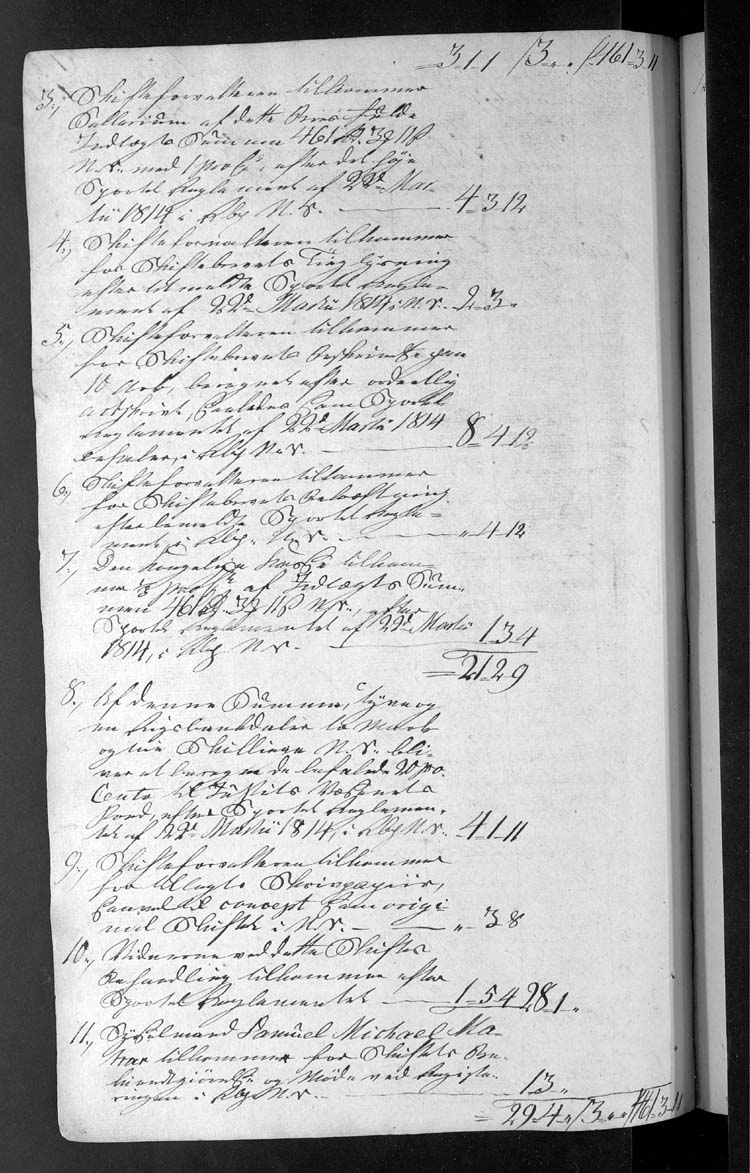 = 3 - 1 - 1 /3 „ „ /461 - 3 - 11
3., Skifteforvalteren tilkommer
Sallarium af dette Boes fulde
Indlægts Summa 461 Rb. 3 ₰ 11 ß
N. S. med 1 proCt, efter det høje
Sportel Reglement af 22d Mar-
tii 1814 i Rbp N. S. — 4 - 3 - 12
4., Skifteforvalteren tilkommer
for Skiftebrevets Tinglysning
efter bemeldte Sportel Regle-
ment af 22d Martii 1814 i N. S. 2 - 3 „
5., Skifteforvalteren tilkommer
for Skiftebrevets Beskrivelse paa
10 Ark, beregnet efter ordentlig
Arkskrivt, saaledes som Sportel
Reglementet af 22d Martii 1814
befaler, i Rbp N. S. — 8 - 4 - 12
6., Skifteforvalteren tilkommer
for Skiftebrevets Bekræftning
efter bemeldte Sportel Regle-
ment, i Rbp. N. S. — „ 4 - 12
7., Den Kongelige Kasse tilkom-
mer ⅓ proCt af Indlægts Sum-
men 461 Rb. 3 ₰ 11 ß N. S. efter
Sportel Reglementet af 22d Martii
1814, i Rbp N. S. — 1 - 3 - 4
= 21 - 2 - 9
8., Af denne Summa, Tyve og
en Rigsbankdaler to Mark
og nie Skilling N. S. bli-
ver at beregne de befalede 20 pro
Cento til Justits Væsenets
Fond, efter Sportel Reglemen-
tet af 22d Martii 1814, i Rbp N. S. 4 - 1 - 11
9., Skifteforvalteren tilkommer
for tillagte Skrivpapiir,
saavel til concept som origi
nal Skiftet i N. S. — „ - 3 - 8
10., Vidnerne ved dette Skiftes
Behandling tilkommer efter
Sportel Reglementet — 1 - 5 - 4 28 - 1 „
11., Sysselmand Samuel Michael Ma-
tras tilkommer for Skiftets Be-
kiendtgiørelse og Møde ved Registe-
ringen i Rbp N. S. — 1 - 3 „
= 29 - 4 „ /3 „ „ /461 - 3 - 11